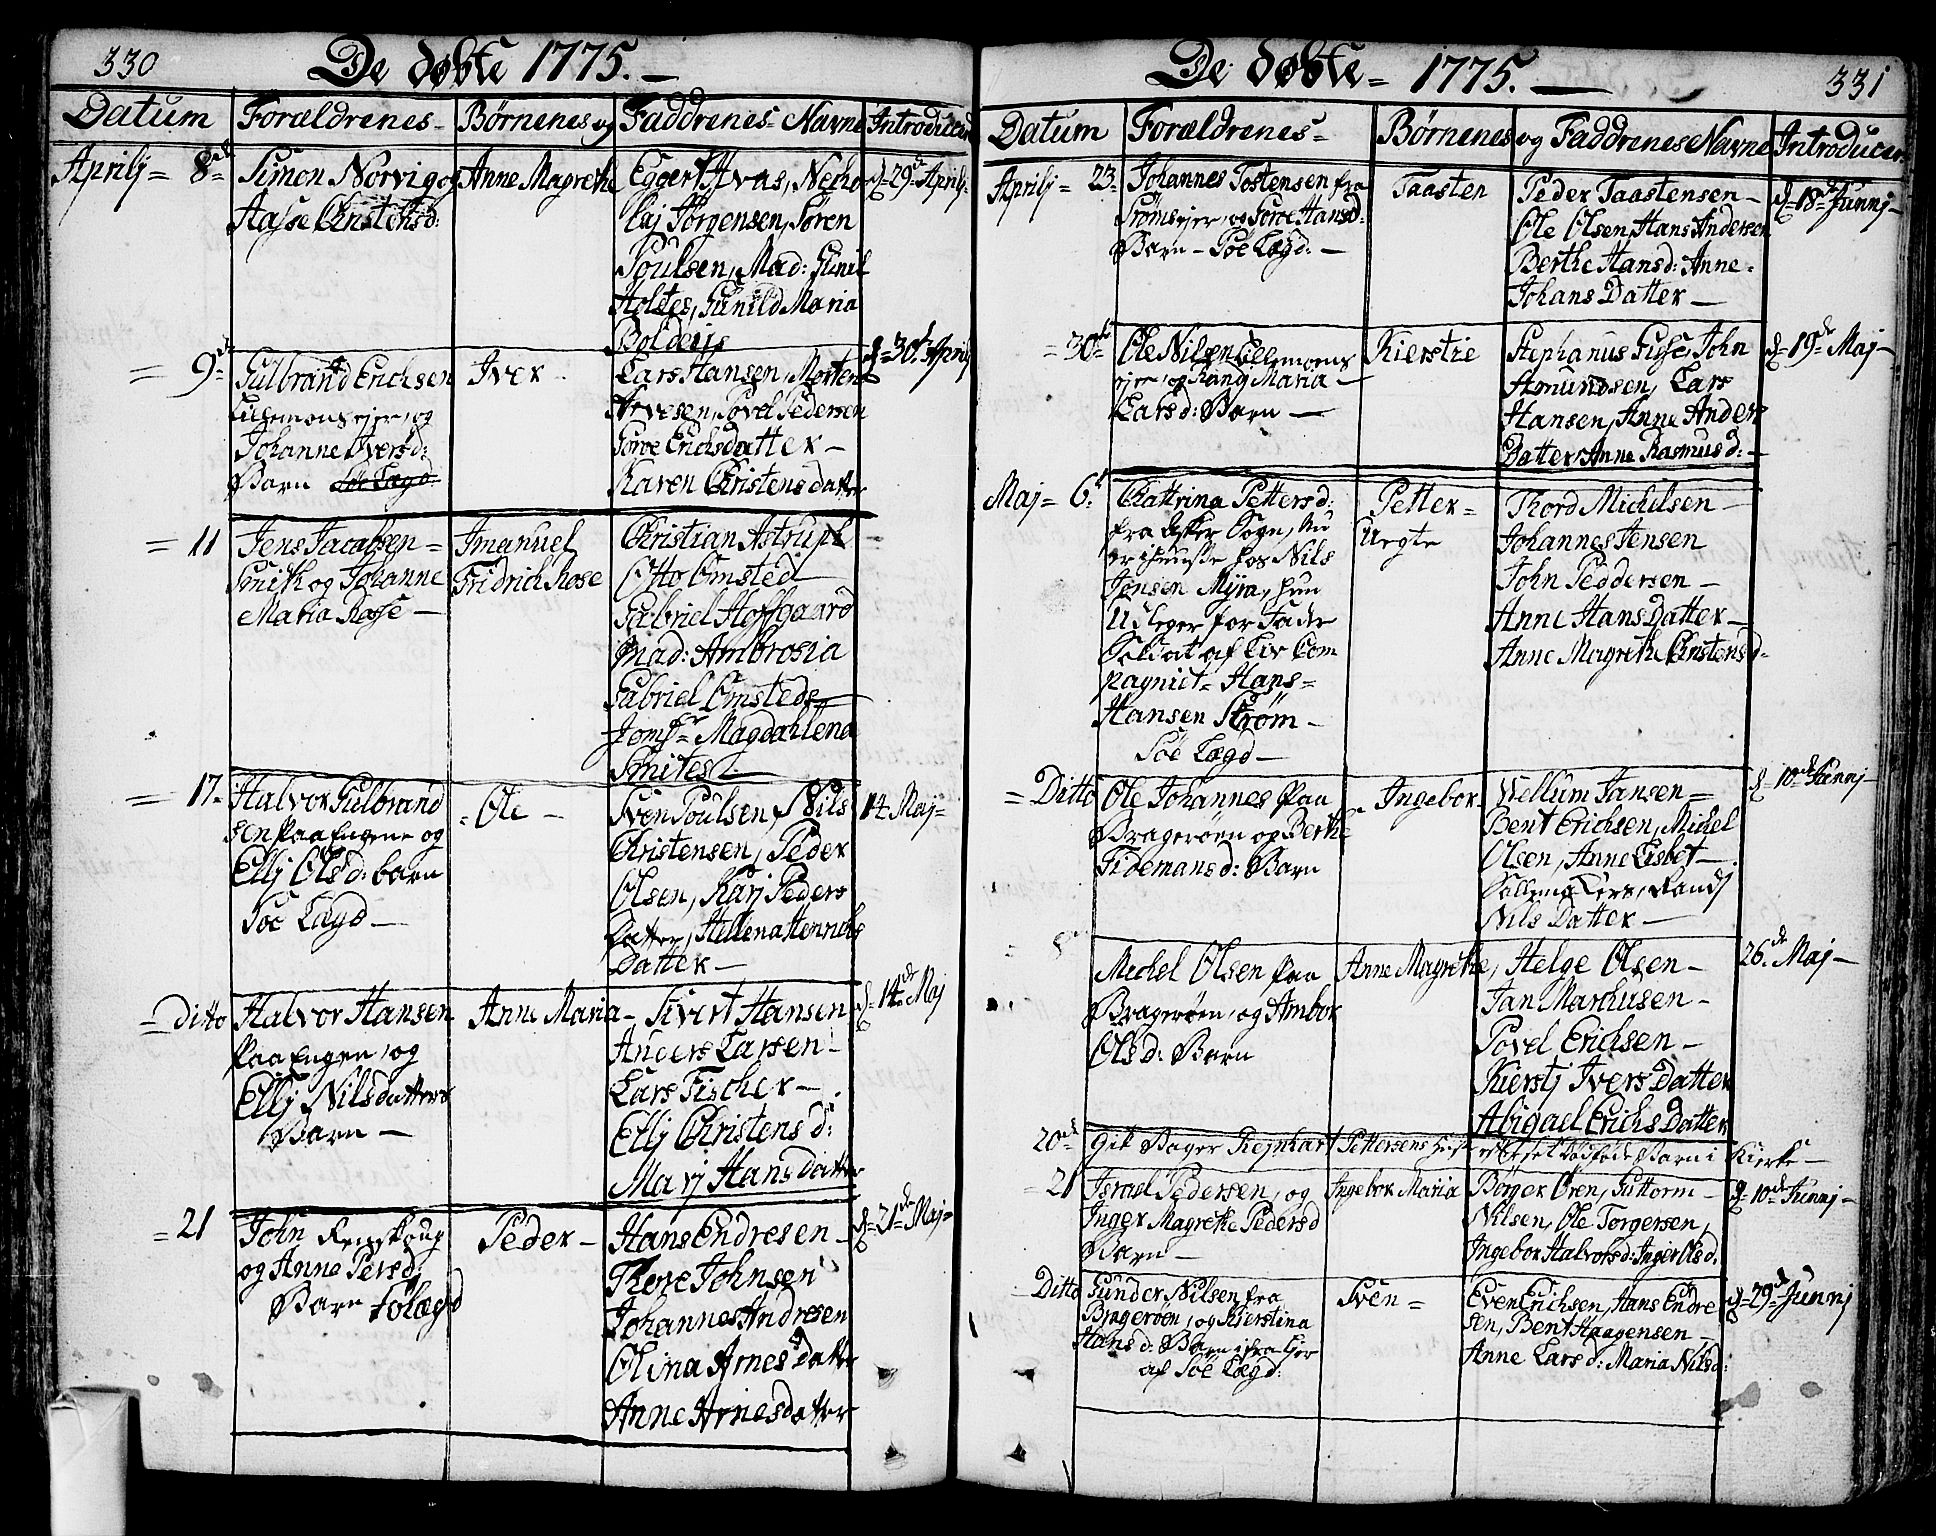 330
De døbte 1775.
Datum Forældrenes Børnenes og Faddrenes Navne Introducer
Aprilj = 8de
Simon Norvig og
Aasse Christensd:
Anne Magrethe
Eggert Avas, Necho
laj Jørgensen, Søren
Poulsen, Mad: Gunil
Holstes, Gunild Maria
Bolderis
d 29de Aprilj
= 9de
Gulbrand Erichsen
Lillemons ejer, og
Johanne Iversd:
Barn Søe Lægd
Iver
Lars Hansen, Morten
Arvesen, Povel Pedersen
Sørve Erichsdatter
Karen Christensdatter
d 30te Aprilj
= 11
Jens Jacobsen
Smith og Johanne
Maria Rosse
Imanuel
Fridrich Rose
Christian Astrup
Otto Omsted
Gabriel Hoffgaard
Mad: Ambrosia
Gabriel Omsteds
Jomfr Magdahlena
Smitest
= 17
Halvor Gulbrand
sen paa Engene og
Ellj Olsd: barn
Søe Lægd
Ole
Sven Poulsen, Nils
Christensen, Peder
Olsen, Karj Peders
Datter, Hellena Henrichs
Datter
14 Maj
= Ditto
Halvor Hansen
paa Engen, og
Ellj Nilsdatters
Barn
Anne Maria
Sivert Hansen
Anders Larsen
Lars Fischer
Ellj Christensd:
Marj Hansdatter
d 14de Maj
= 21
John Renskoug
og Anne Persd:
Barn Søl ægd
Peder
Hans Endresen
Thore Johnsen
Johannes Andresen
Olina Arnesdatter
Anne Arnesdatter
d 21de Maj
331
De døbte 1775.
Datum Forældrenes Børnenes og Faddrenes Navne Introducer
Aprilj = 23
Johannes Tostensen fra
Strømsejer, og Sørve Hansd:
Barn Søe Lægd:
Taasten
Peder Taastensen
Ole Olsen, Hans Andersen
Berthe Hansd: Anne
Johans Datter
d 18de Junnj
= 30te
Ole Nilsen Lillemons
ejer, og Rangj Maria
Larsd: Barn
Kierstie
Stephanus Gusse, John
Amundsen, Lars
Hansen, Anne Anders
Datter Anne Rasmusd:
d 19de Maj
Maj = 6te
Chattrina Pettersd:
fra Asker Sogn, nu
er i huusse hos Nils
Jensen Myra, hun
Udleger for Fader
Soldat af Liv Com
pagniet Hans
Hansen Strøm
Søe Lægd
Petter
Uegte
Thord Michelsen
Johannes Jensen
John Peddersen
Anne Hans Datter
Anne Magrethe Christensd
= Ditto
Ole Johannes paa
Bragerøen og Berthe
Tidemansd: Barn
Ingebor
Wellum Jansen
Bent Erichsen, Michel
Olsen, Anne Lisbet
Randj
Nils Datter
d 10de Junnj
8
Michel Olsen paa
Bragerøen, og Ambor
Olsd: Barn
Anne Magrethe
Helge Olsen
Jan Marchusen
Povel Erichsen
Kierstj Ivers Datter
Abigael Erichs Datter
26de Maj
20de gik Bager Rejnhart Pettersens Hustr efter et dødføde Barn i Kierke
= 21
Israel Pedersen, og
Inger Magrethe Pedersd
Barn
Ingebor Maria
Børger Ören, Guttorm
Nilsen, Ole Torgersen,
Ingebor Halvorsd: Inger Olsd:
d 10de Junnj
Ditto
Gunder Nilsen fra
Bragerøen, og Kierstina
Hans d: Barn
af Søe Lægd:
Sven
Even Erichsen, Hans Endre
sen, Bent Haagensen
Anne Larsd: Maria Nilsd:
d 29de Junnj